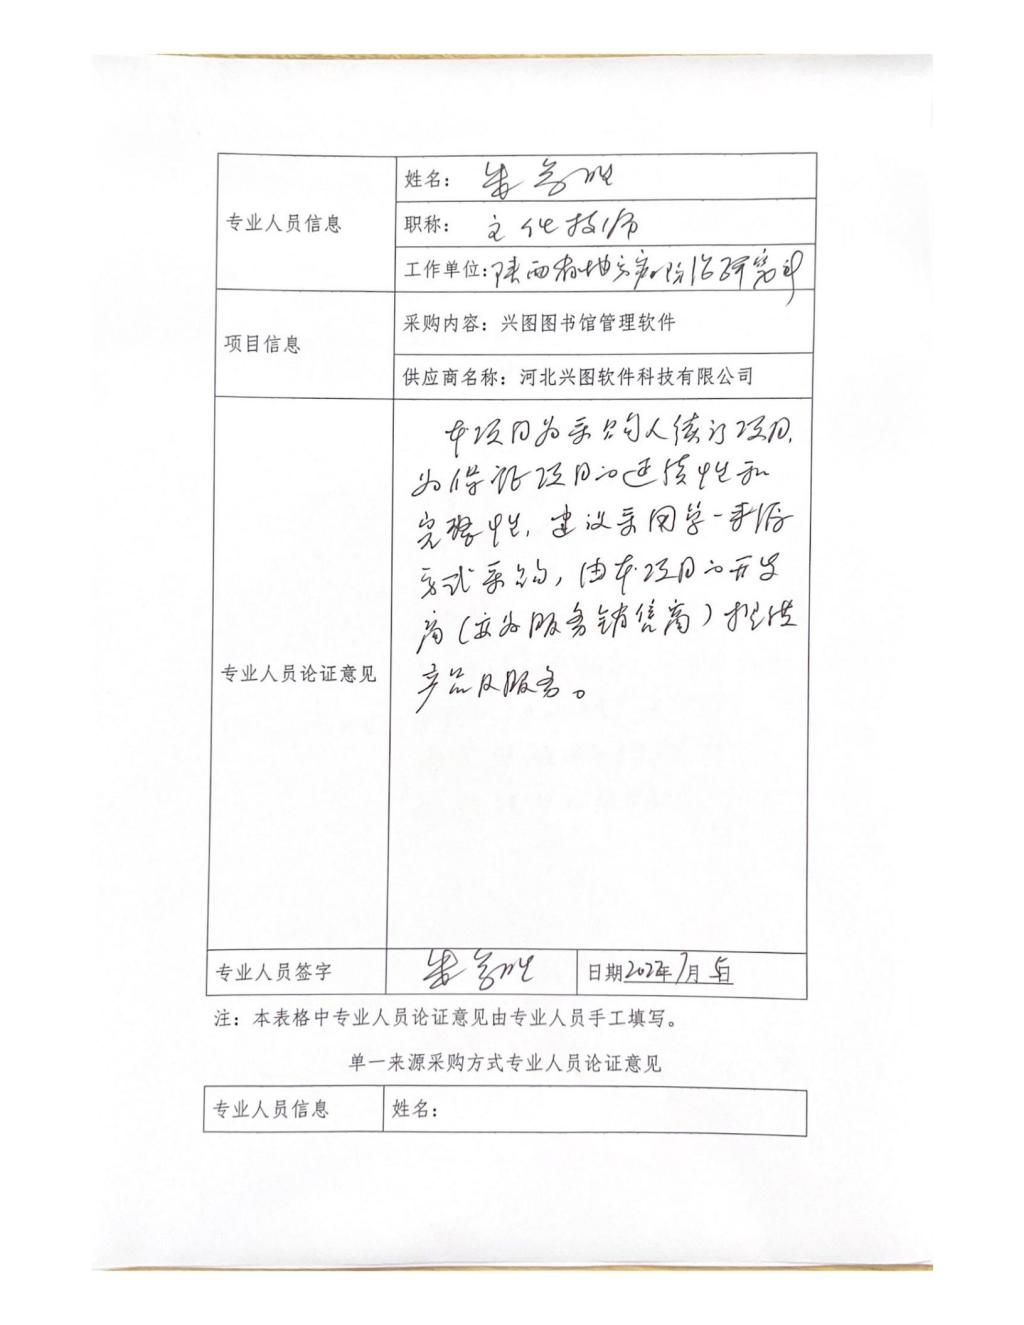 专业人员信息
姓名：朱
职称：主任技师
工作单位：陕西省地方病防治研究所
项目信息
采购内容：兴图图书馆管理软件
供应商名称：河北兴图软件科技有限公司
专业人员论证意见
本项目为采购人续订项目，
为保证项目的连续性和
完整性，建议采用单一来源
方式采购，由本项目的开发
商（亦为服务销售商）提供
产品及服务。
专业人员签字
朱
日期2022年7月5日
注：本表格中专业人员论证意见由专业人员手工填写。
单一来源采购方式专业人员论证意见
专业人员信息
姓名：